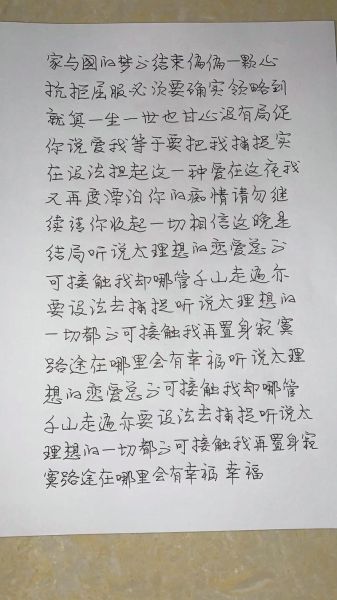 家与国的梦不结束偏偏一颗心
抗拒屈服必须要确实领略到
就算一生一世也甘心没有局促
你说爱我等于要把我捕捉实
在没法担起这一种爱在这夜我
又再度漂泊你的痴情请勿继
续请你收起一切相信这晚是
结局听说太理想的恋爱总不
可接触我却哪管千山走遍亦
要设法去捕捉听说太理想的
一切都不可接触我再置身寂寞
路途在哪里会有幸福听说太理
想的恋爱总不可接触我却哪管
千山走遍亦要设法去捕捉听说太
理想的一切都不可接触我再置身寂
寞路途在哪里会有幸福 幸福